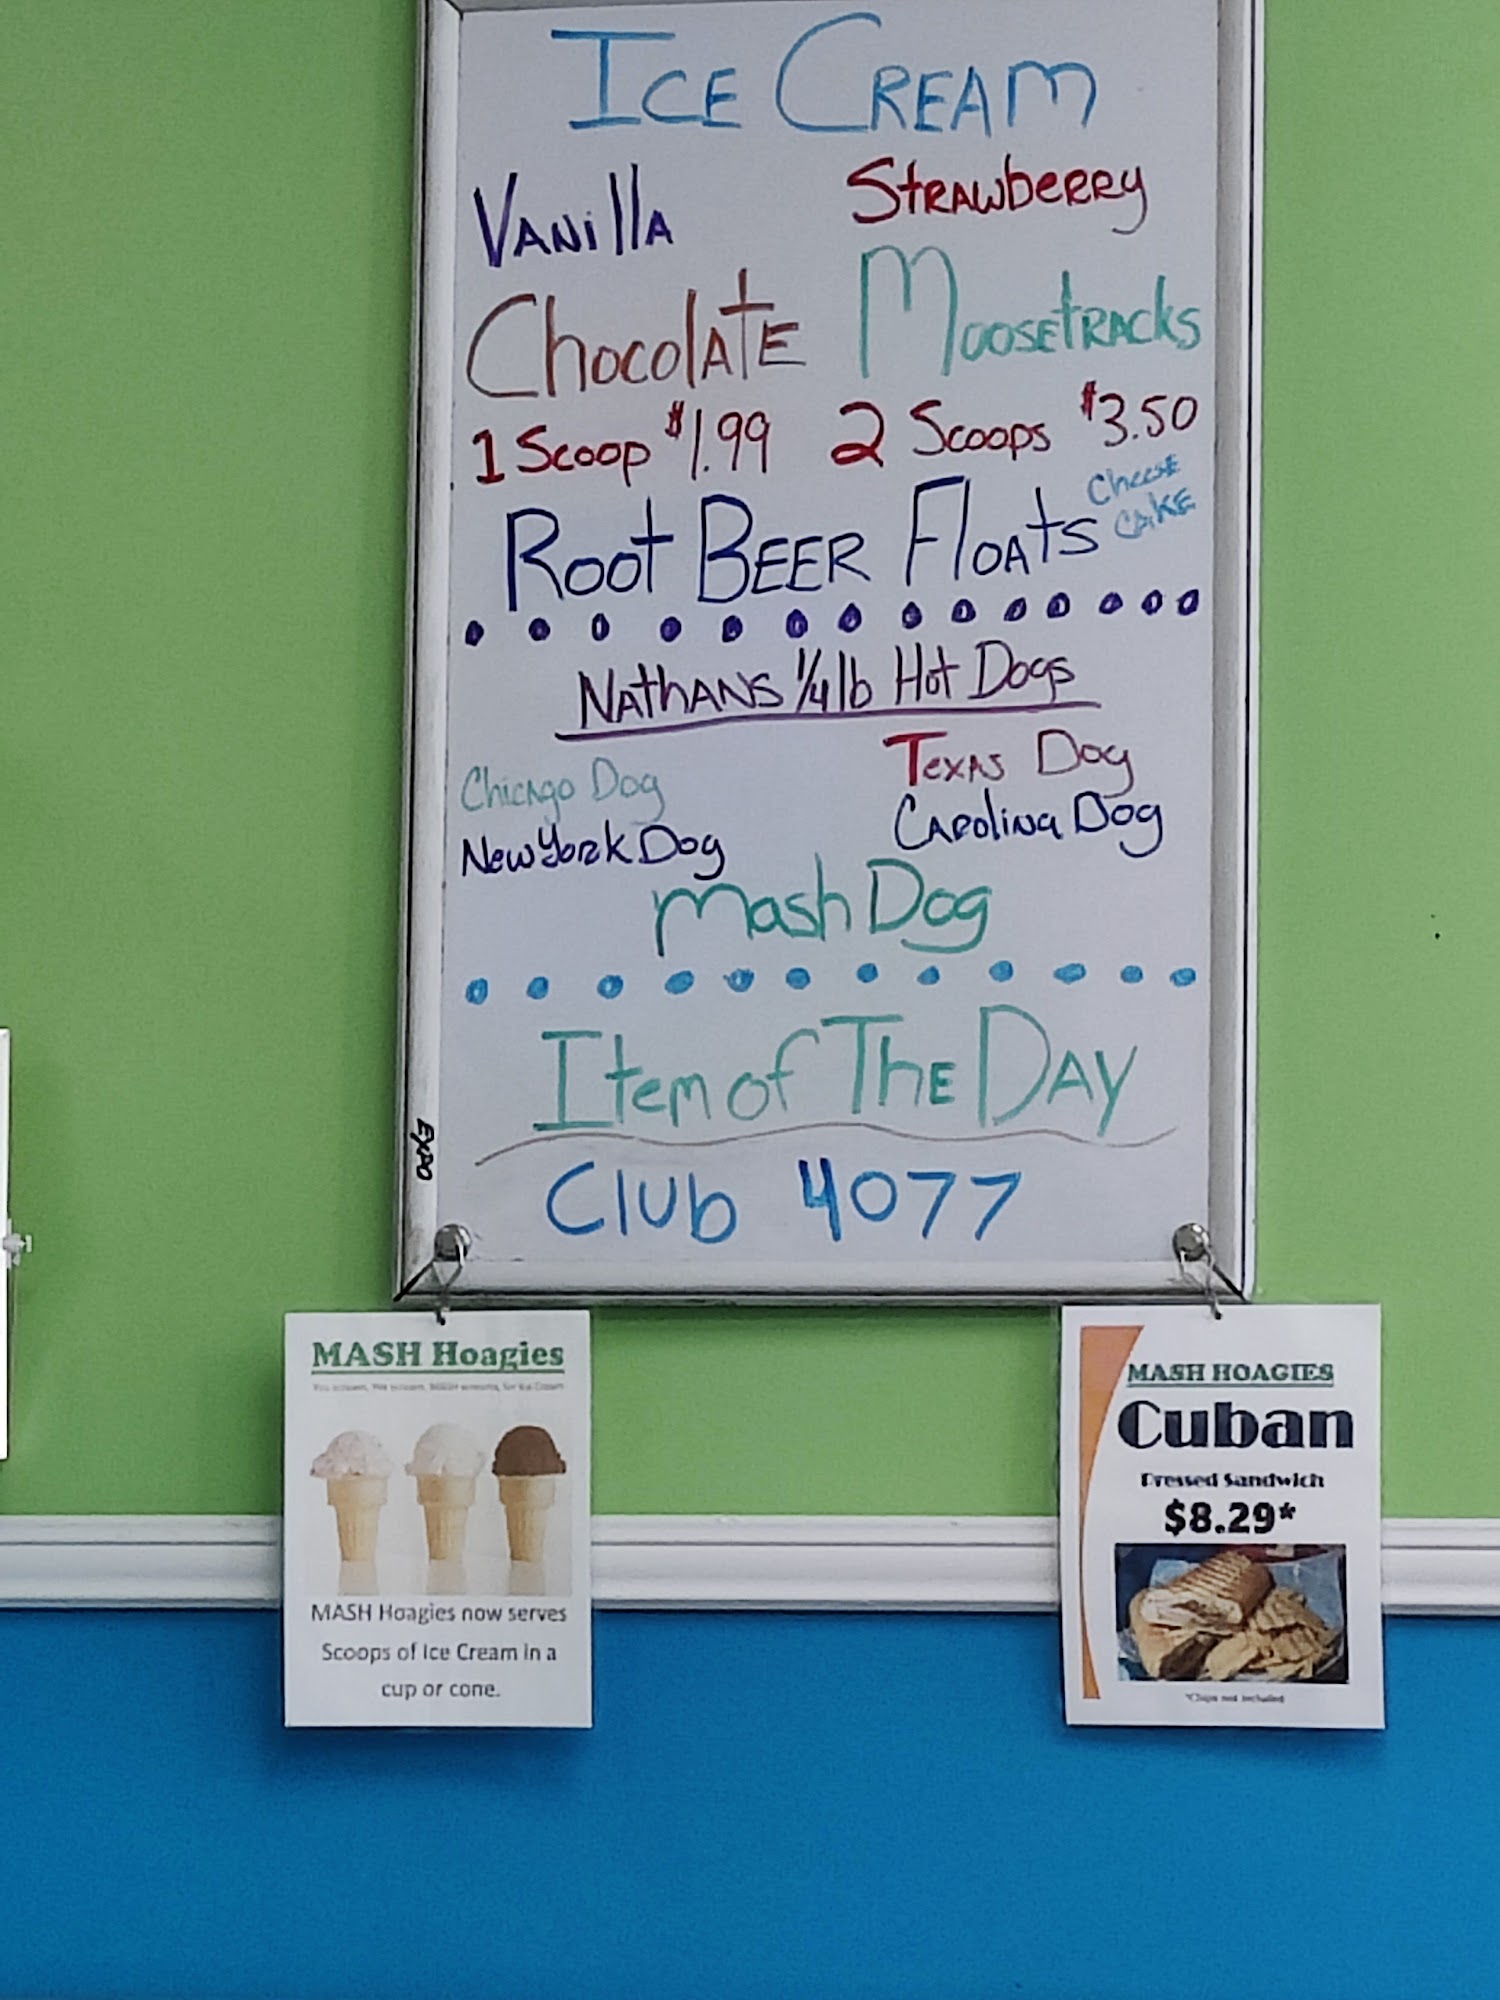 ICE CREAM
Vanilla Strawberry
Chocolate Moosetracks
1 Scoop $1.99 2 Scoops $3.50
Root Beer Floats
Cheese
Cake
Nathans 1/4 lb Hot Dogs
Chicago Dog Texas Dog
New York Dog Carolina Dog
Mash Dog
Item of The Day
Club 4077
EXPO
MASH Hoagies
MASH Hoagies now serves
Scoops of Ice Cream in a
cup or cone.
MASH HOAGIES
Cuban
Pressed Sandwich
$8.29*
*Chips not included